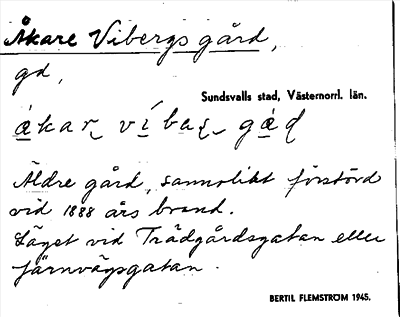 Åkare Vibergs gård,
gd,
Sundsvalls stad, Västernorrl. län.
Äldre gård, sannolikt förstörd
vid 1888 års brand.
Läget vid Trädgårdsgatan eller
Järnvägsgatan.
BERTIL FLEMSTRÖM 1945.